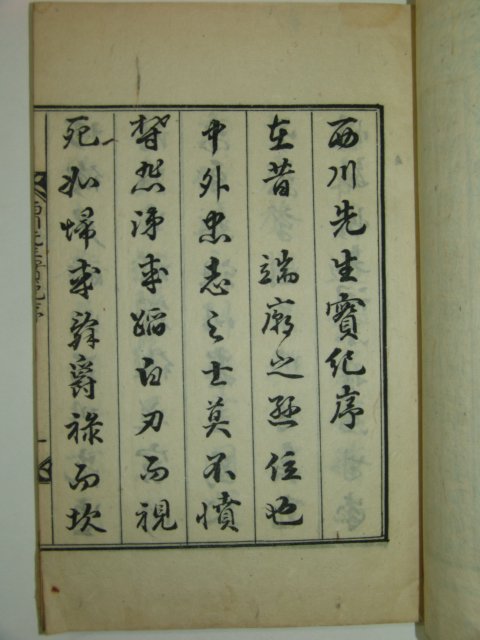 西川先生實紀序
在昔 端廟之遜位也
中外忠志之士莫不憤
怨 或蹈白刃而視
死如歸或辭爵祿而坎